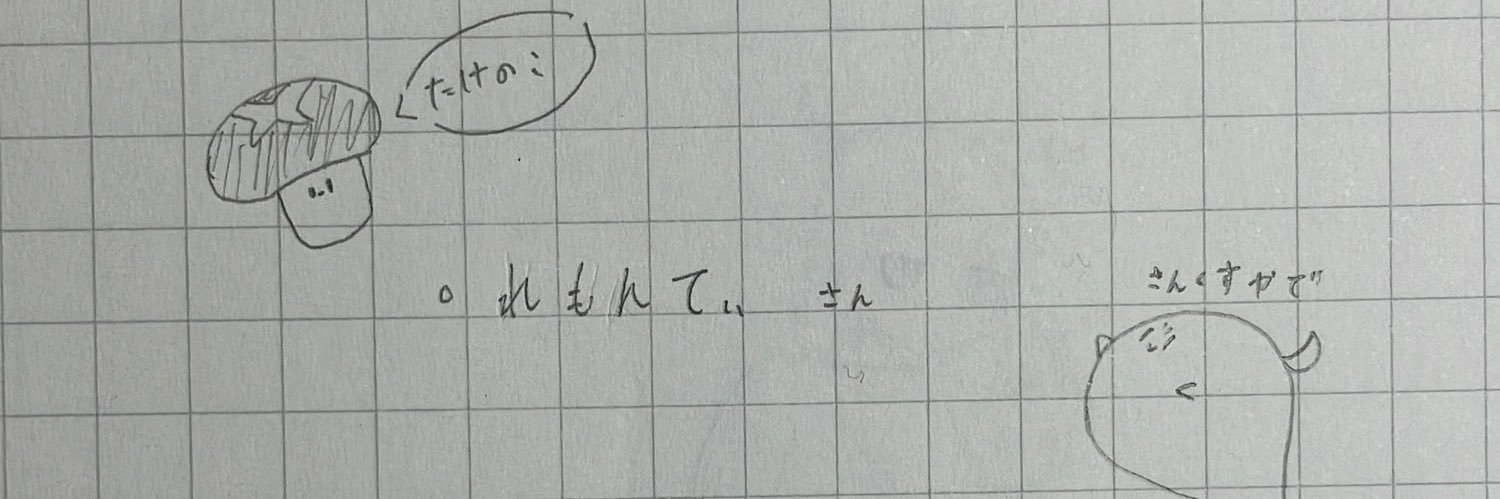 たけのこ
。れもんてぃ さん
さんくすやで